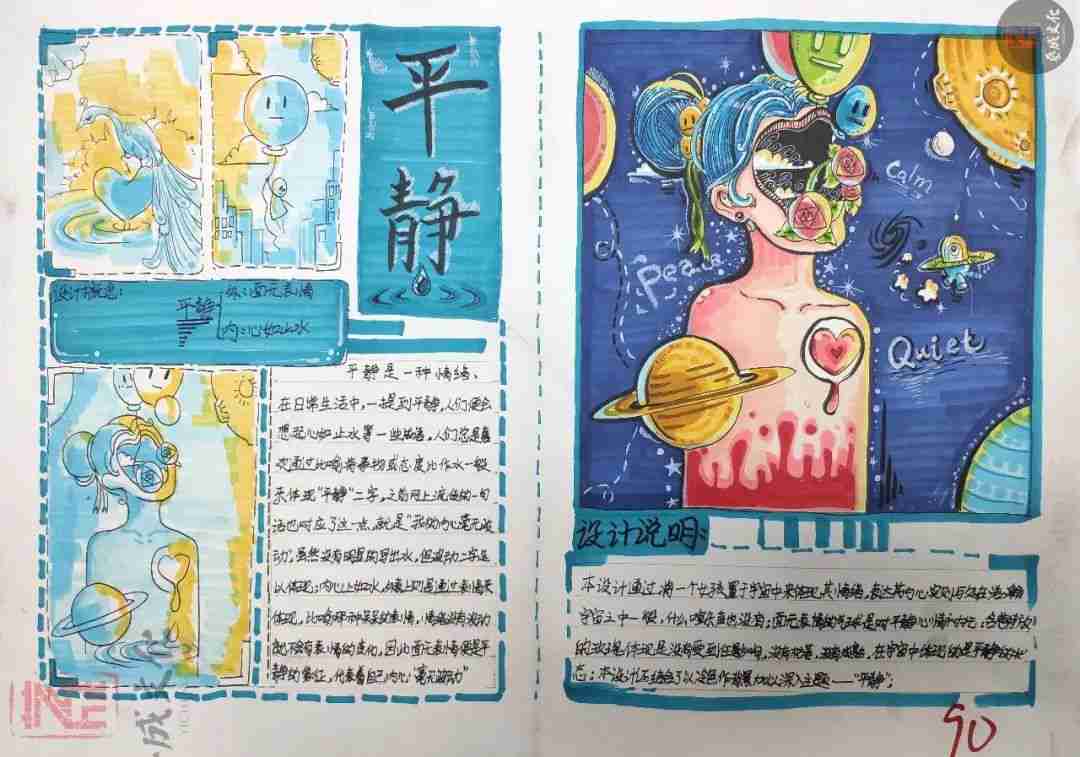 平静
设计概念:
平静
外:面无表情
内:心如止水
平静是一种情绪、
在日常生活中,一提到平静,人们便会
想起心如止水等一些成语。人们总是喜
欢通过比喻将事物或态度比作水一般
来体现“平静”二字,之前网上流传的一句
话也对应了这一点,就是“我的内心毫无波
动”虽然没有明显的写出水,但波动二字足
以体现:内心止如水,情绪上则是通过表情来
体现,比喻那种呆呆的表情,情绪没有波动
就不会有表情的变化,因此面无表情便是平
静的象征,代表着自己内心“毫无波动”
Calm
Peace
Quiet
设计说明:
本设计通过将一个女孩置于宇宙中来体现其情绪,表达其内心
宇宙之中一般,什么噪杂声也没有;面无表情的气球是对平静心情的
的玫瑰体现是没有受到任何影响,没有枯萎,在宇宙中体现的是平静的状
态;本设计还结合了以冷色作背景加以深入主题——“平静”;
90